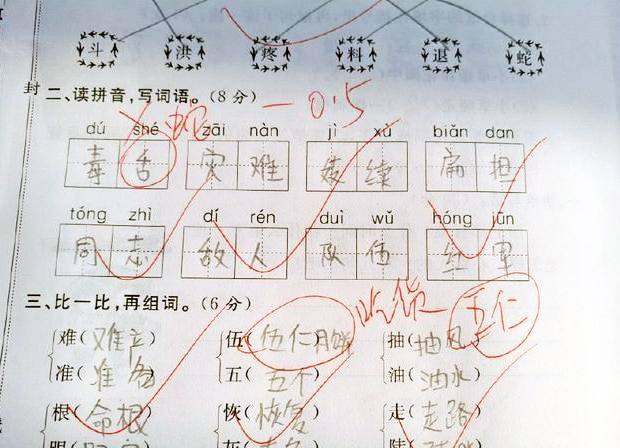 斗 洪 疼 料 退 蛇
封
二、读拼音,写词语。(8分) -0.5
dú shé zāi nàn jì xù biǎn dan
蛇
毒 舌 灾 难 继 续 扁 担
tóng zhì dí rén duì wǔ hóng jūn
同 志 敌 人 队 伍 红 军
三、比一比,再组词。(6分) 吃货 五仁
难( ) 伍(伍仁月饼) 抽(抽风)
准(准备) 五(五个) 油(油水)
根(命根) 恢(恢复) 走(走路)